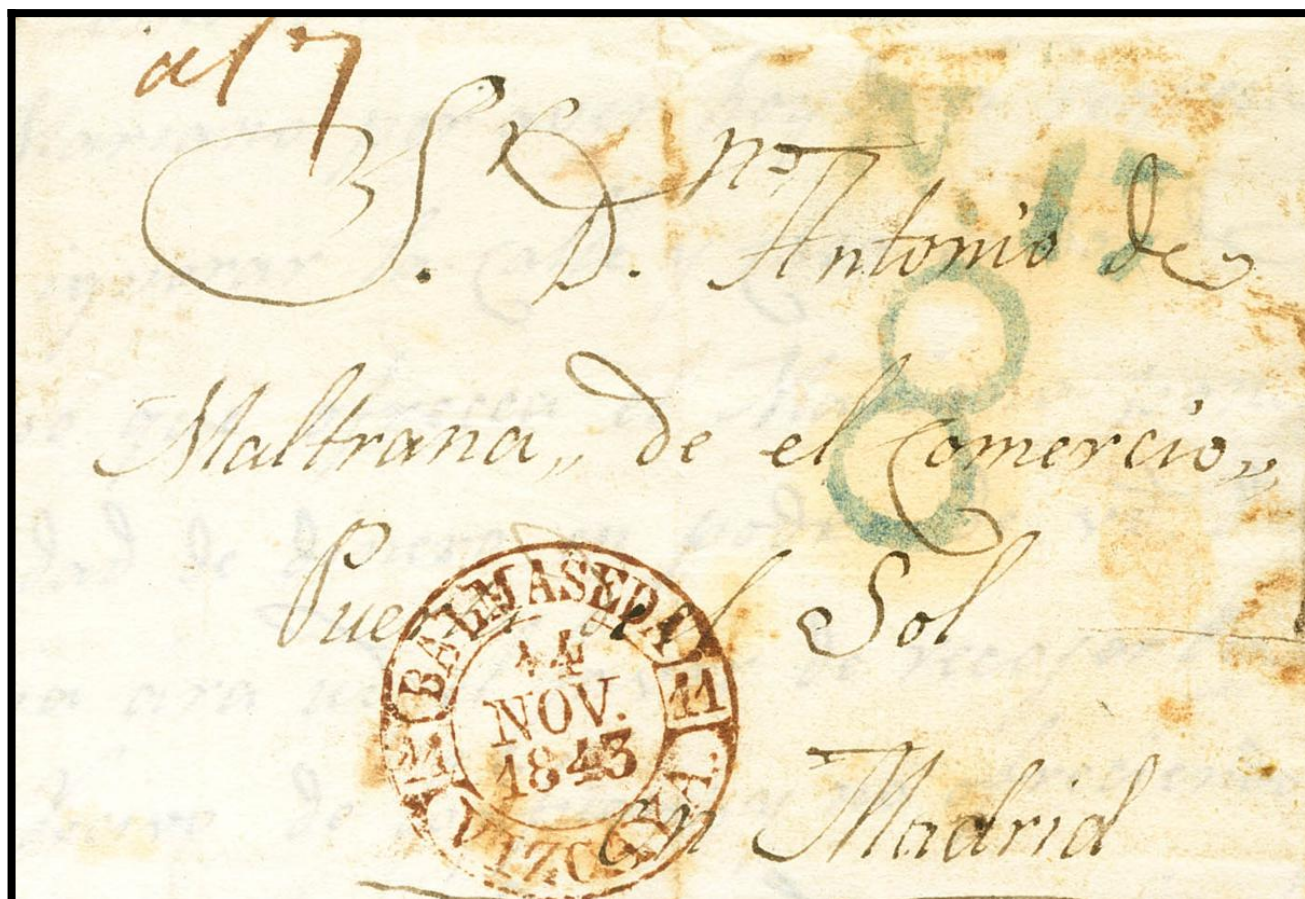 al 7
Sr. Dn. Antonio de
Maltrana,, de el Comercio,,
Puerta del Sol
en Madrid
8
BALMASEDA
11
14
NOV.
1843
11
VIZCAYA.